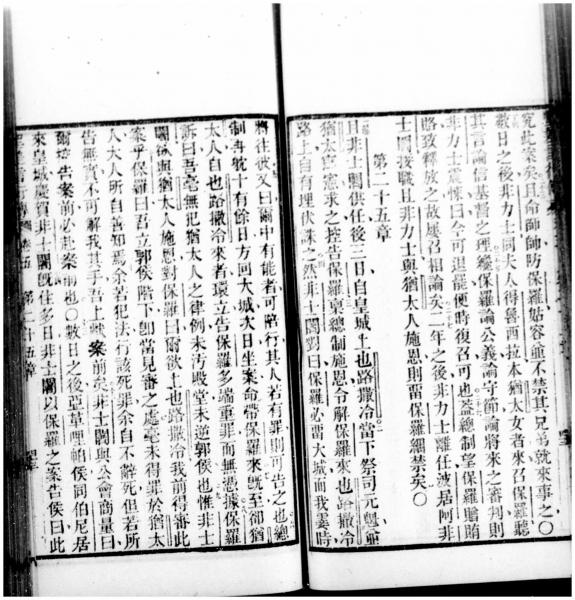 究此案矣且命師師防保羅姑容並不禁其兄弟就來事之〇
數日之後非力士同夫人得魯西拉本猶太女者來召保羅聽
其言論信基督之理纔保羅論公義論守節論將來之審判則
非力士震悚曰今可退罷便時復召可也葢總制望保羅贈賄
略致釋放之故屢召相論矣二年之後非力士離任波居阿非
士闊接職且非力士與猶太人施恩則畱保羅綑禁矣〇
第二十五章
且非士闊供任後三日自皇城上也路撒冷當下祭司元魁爺
猶太尊憲求之控告保羅稟總制施恩令解保羅來也路撒冷
路上自有埋伏誅之然非士闊對曰保羅必畱大城而我霎時
將往我又曰爾中有能者可陪行其人若有罪則可告之也總
制再號十有餘日方回大城次日坐案命帶保羅來旣至卻猶
太人自也路撒冷來者環立告保羅多端重罪而無憑據保羅
訴曰吾毫無犯猶太人之律例未污殿堂未逆郭侯也惟非士
闊欲與猶太人施恩對保羅曰爾欲上也路撒冷我前得審此
案乎保羅曰吾立郭侯階下卽當見審之處毫未得罪於猶太
人大人所自善知焉余若犯法行該死罪余自不辭死但若所
告無實不可解我其手吾上狀案前矣非士闊與公會商量曰
爾控告案前必赴案前也〇數日之後亞草哩帕侯同伯尼居
來皇城慶賀非士闊旣住多日非士闊以保羅之案告侯曰此
第二十五章